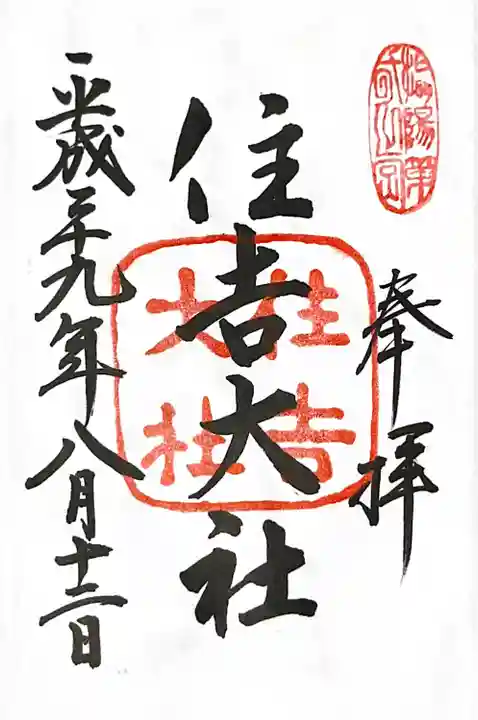 奉拝
住吉大社
住吉
大社
平成二十九年八月十二日